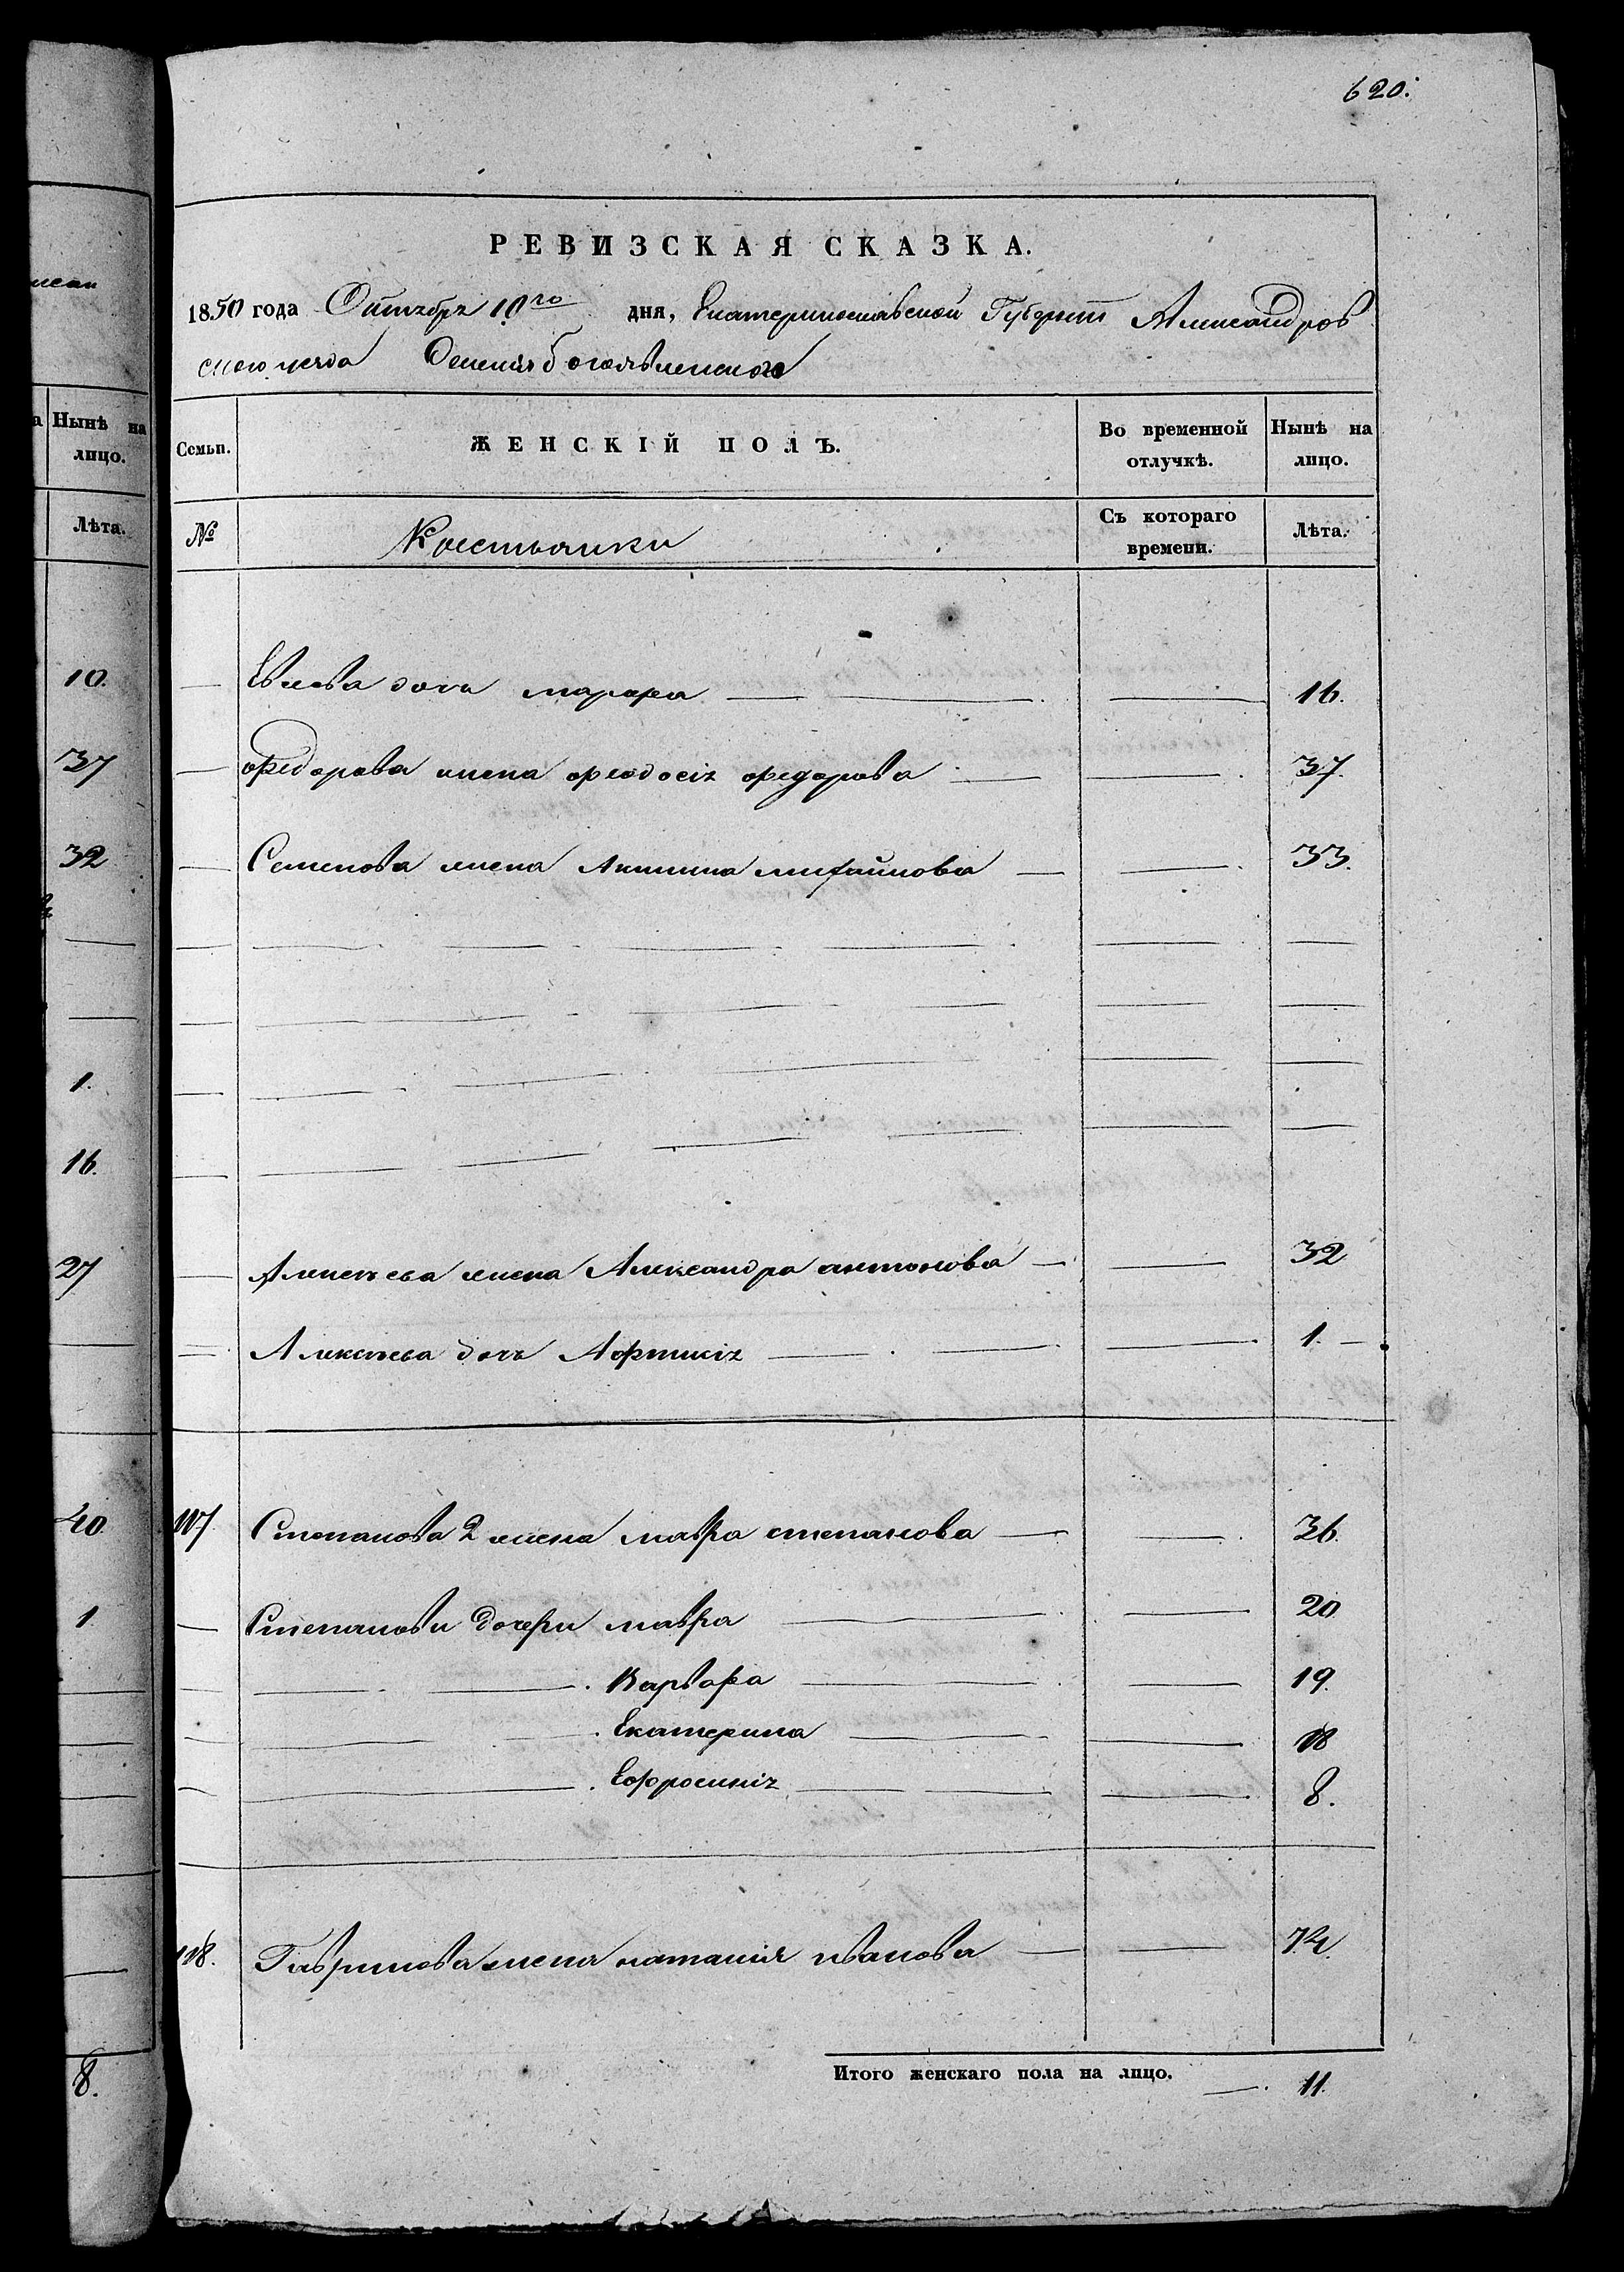 620.
РЕВИЗСКАЯ СКАЗКА.
1850 года Октября 10го дня, Екатеринославской Губернии Александров
ского уезда Селения богоявленского
Семьи. ЖЕНСКІЙ ПОЛЪ. Во временной отлучкѣ. Нынѣ на лицо.
№ Крестьянки Съ котораго времени. Лѣта.
дочь 16.
Федорова жена феодосія федорова 37.
Семенова жена Акилина михайлова 33.
Алексѣева жена Александра антонова 32
Алексѣева дочь 1.
107 Степанова 2 жена мавра степанова 36.
Степановы дочери мавра 20
Варвара 19.
Екатерина 18
Ефросинія 8.
108. Гаврилова жена наталія иванова 74.
Итого женскаго пола на лицо. 11.
Нынѣ на
лицо.
Лѣта.
10.
37
32
1.
16.
27
40
1
8.